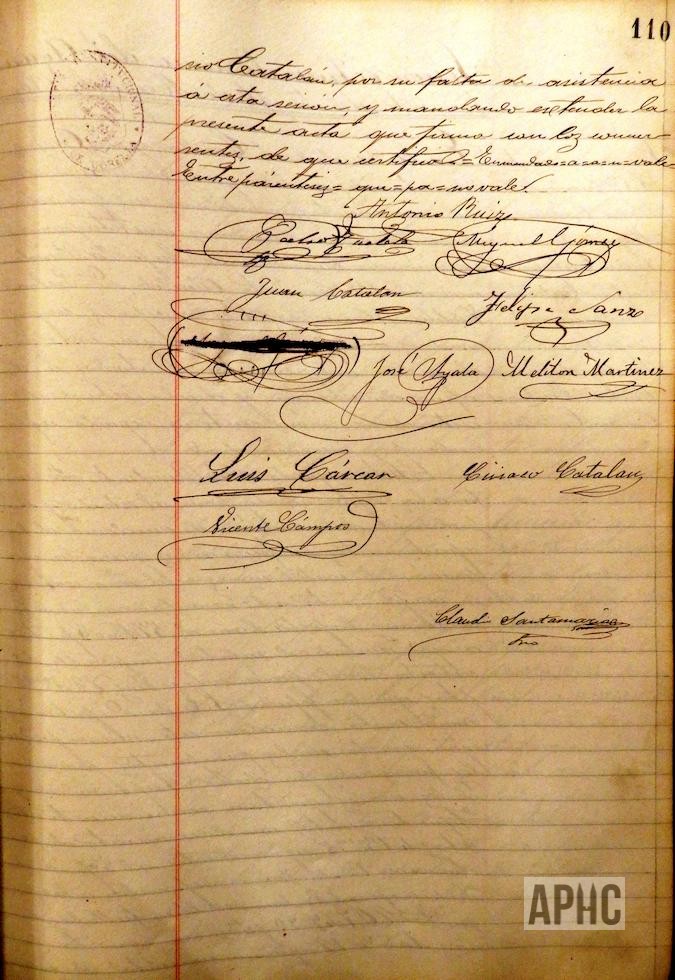 110
sio Catalán, por su falta de asistencia
á esta sesión, y mandando extender la
presente acta que firma con los concur-
rentes, de que certifico.=Enmendado=a=a=n=vale=
Entre paréntisis= que=pa=no vale.
Antonio Ruiz
Pedro Miguel Gómez
Juan Catalan Felipe Sanz
José Ayala Meliton Martinez
Luis Cárcar Ciriaco Catalan
Vicente Cámpos
Claudio Santamaria
Srio
APHC